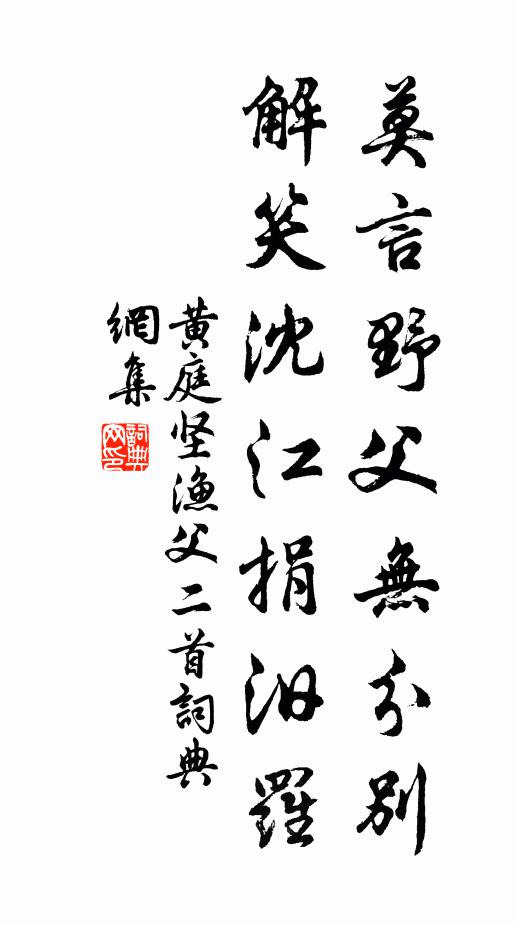 莫言野父無分別
解笑沈江捐汨羅
黃庭坚漁父二首詞典
網集
詞典网印